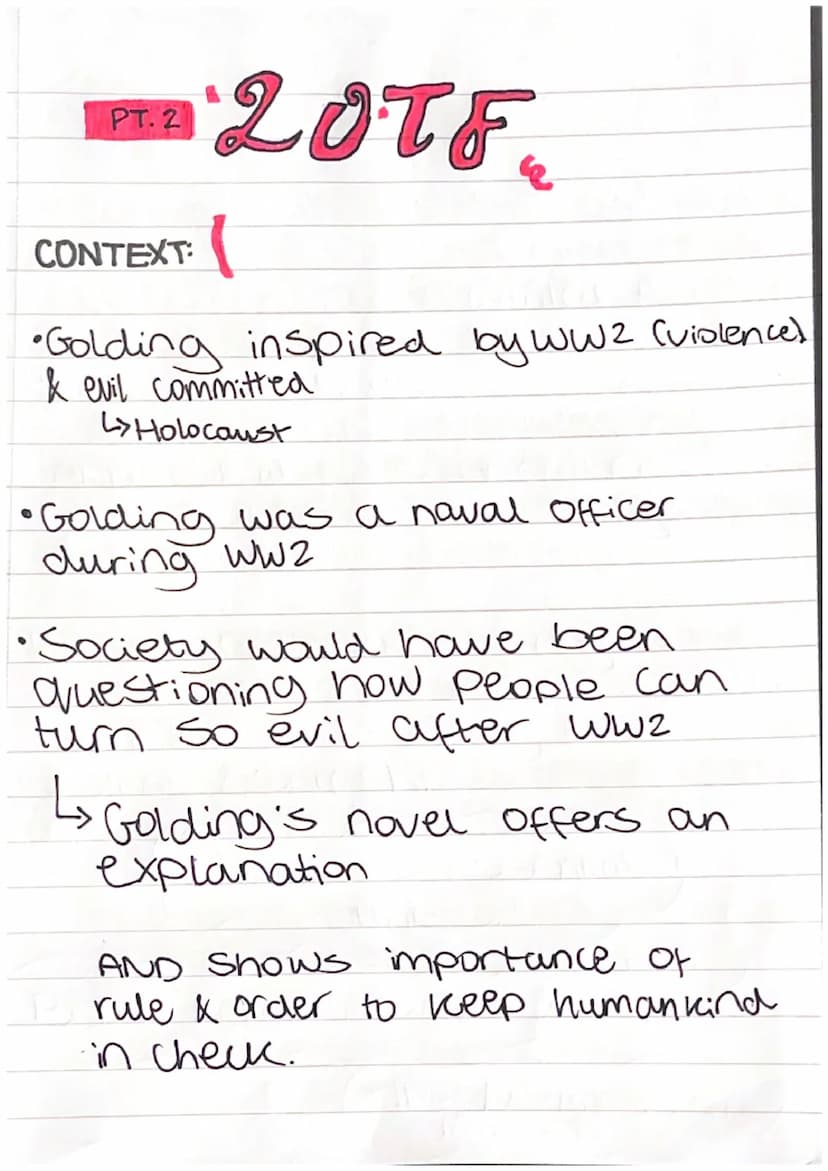 PT. 2 LOTF
CONTEXT:
•Golding inspired by WW2 (violence)
& evil committed
↳Holocaust
•Golding was a naval officer
during WW2
•Society would have been
questioning how people can
turn so evil after WW2
↳Golding's novel offers an
explanation
AND shows importance of
rule & order to keep humankind
in check.